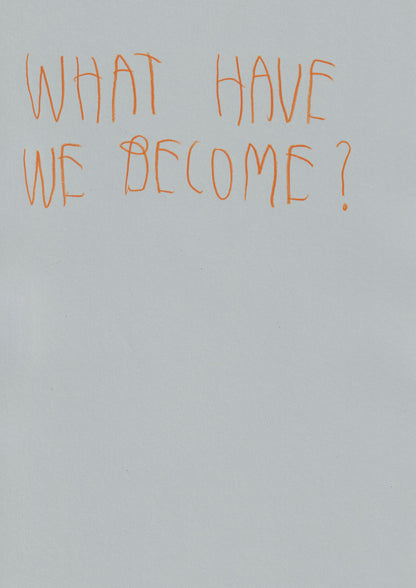 WHAT HAVE
WE BECOME?